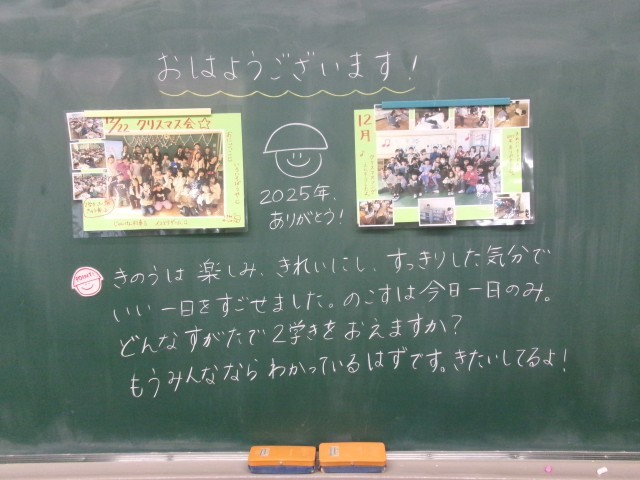 おはようございます!
12/22 クリスマス会☆
12月
2025年、
ありがとう!
POINT!
きのうは 楽しみ、きれいにし、すっきりした気分で
いい一日をすごせました。のこすは今日一日のみ。
どんなすがたで2学きをおえますか?
もうみんななら わかっているはずです。きたいしてるよ!